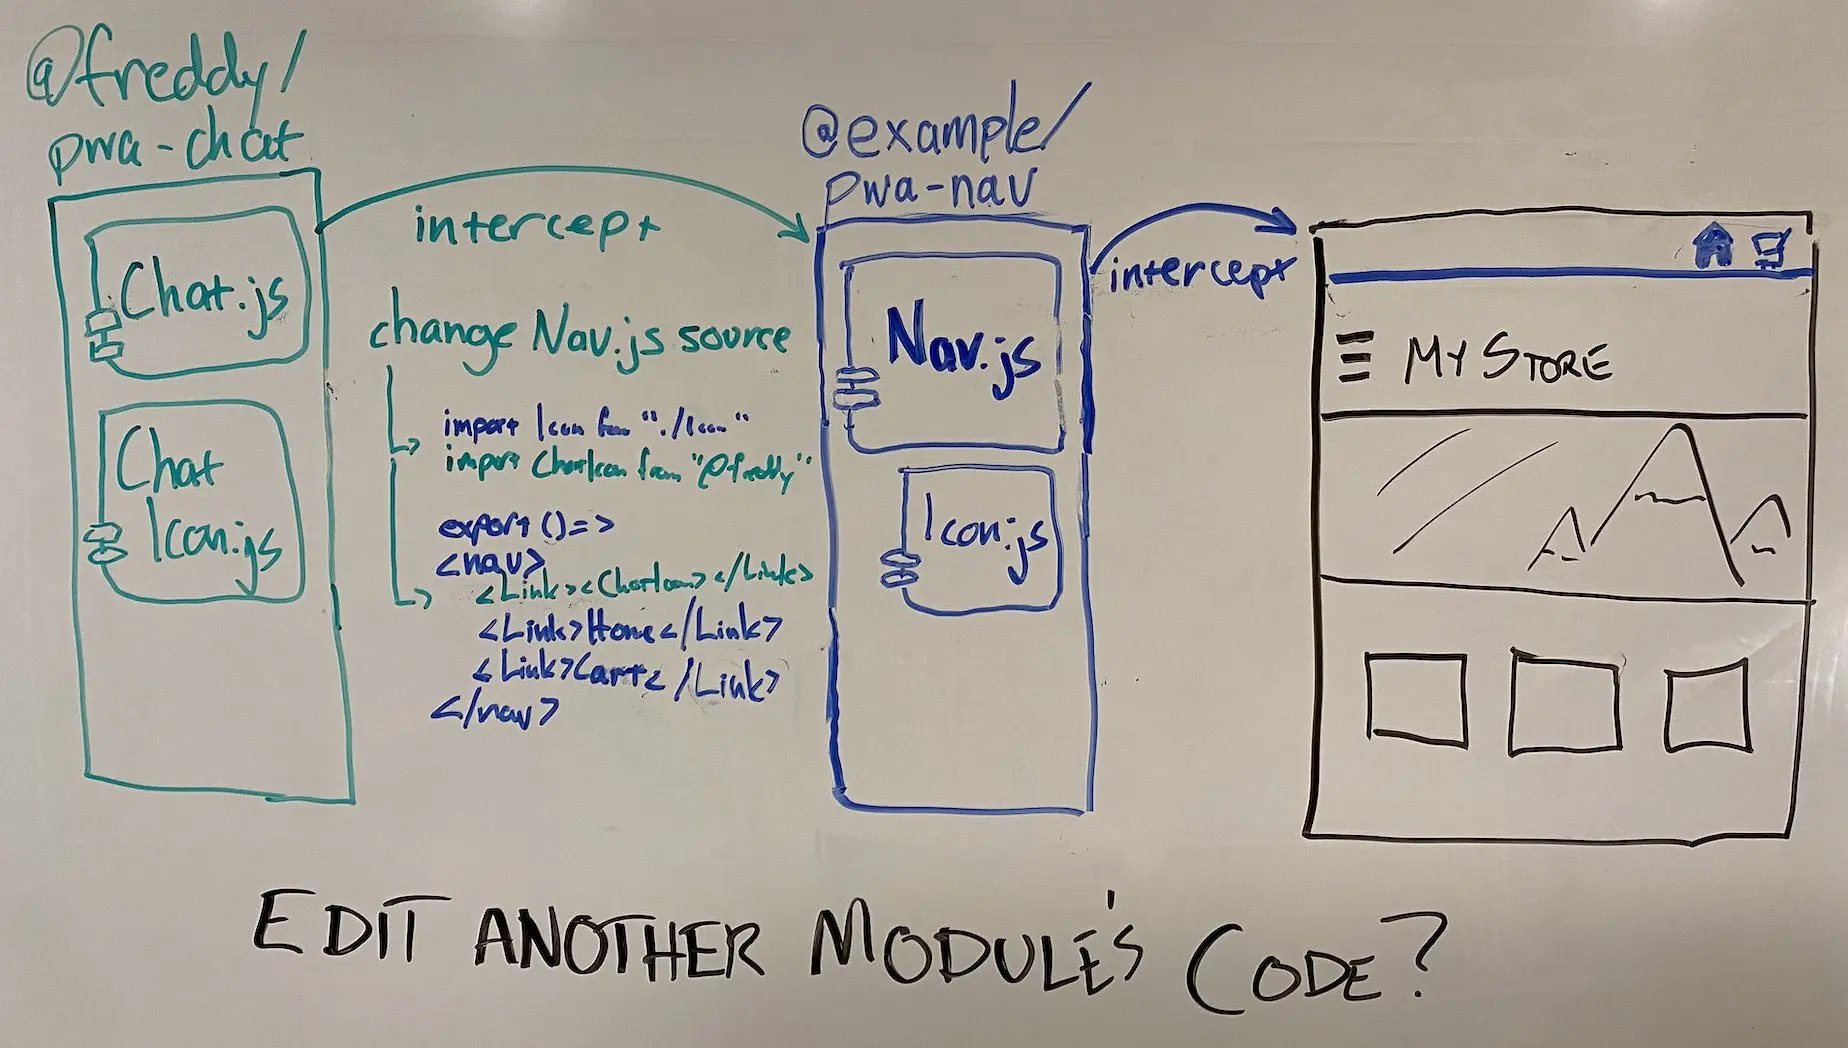 @freddy/
pwa-chat
Chat.js
Chat
Icon.js
intercept
change Nav.js source
import Icon from "./Icon"
import ChatIcon from "@freddy"
export () =>
<nav>
<Link><ChatIcon></Link>
<Link>Home</Link>
<Link>Cart</Link>
</nav>
@example/
pwa-nav
Nav.js
Icon.js
intercept
MY STORE
EDIT ANOTHER MODULE'S CODE?